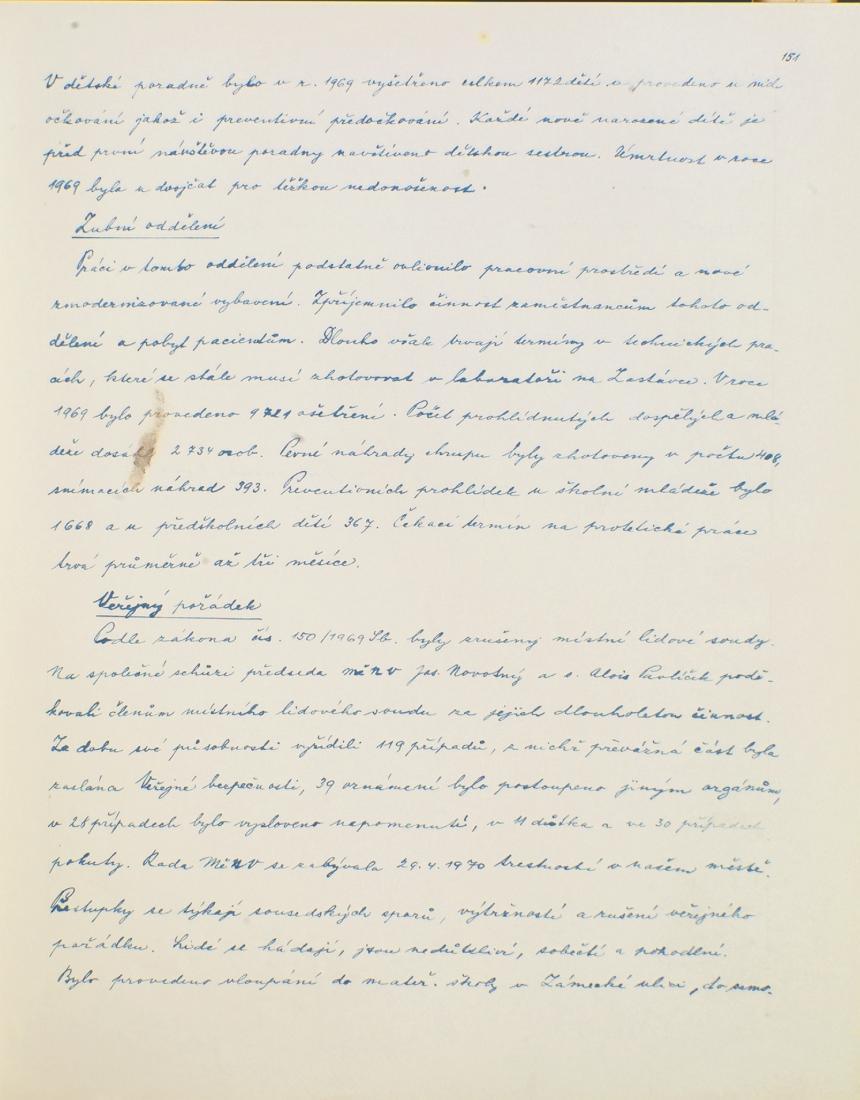 151
V dětské poradně bylo v r. 1969 vyšetřeno celkem 1172 dětí a provedeno u nich
očkování jakož i preventivní předočkování. Každé nově narozené dítě je
před první návštěvou poradny navštíveno dětskou sestrou. Úmrtnost v roce
1969 byla u dvojčat pro těžkou nedonošenost.
Zubní oddělení
Práci v tomto oddělení podstatně ovlivnilo pracovní prostředí a nové
zmodernizované vybavení. Zpříjemnilo činnost zaměstnancům tohoto od-
dělení a pobyt pacientům. Dlouho však trvají termíny v technických pra-
cích, které se stále musí zhotovovat v laboratoři na Zastávce. V roce
1969 bylo provedeno 9721 ošetření. Počet prohlídnutých dospělých a mlá-
deže dosáhl 2 734 osob. Pevné náhrady chrupu byly zhotoveny v počtu 408,
snímacích náhrad 393. Preventivních prohlídek u školní mládeže bylo
1668 a u předškolních dětí 367. Čekací termín na protetické práce
trvá průměrně až tři měsíce.
Veřejný pořádek
Podle zákona čís. 150/1969 Sb. byly zrušeny místní lidové soudy.
Na společné schůzi předseda MěNV Jos. Novotný a s. Alois Pavlíček podě-
kovali členům místního lidového soudu za jejich dlouholetou činnost.
Za dobu své působnosti vyřídili 119 případů, z nichž převážná část byla
zaslána Veřejné bezpečnosti, 39 oznámení bylo postoupeno jiným orgánům,
v 28 případech bylo vysloveno napomenutí, v 11 důtka a ve 30 případech
pokuty. Rada MěNV se zabývala 29.4.1970 trestností v našem městě.
Přestupky se týkají sousedských sporů, výtržností a rušení veřejného
pořádku. Lidé se hádají, jsou nedůtkliví, sobečtí a pohodlní.
Bylo provedeno vloupání do mateř. školy v Zámecké ulici, do samo-